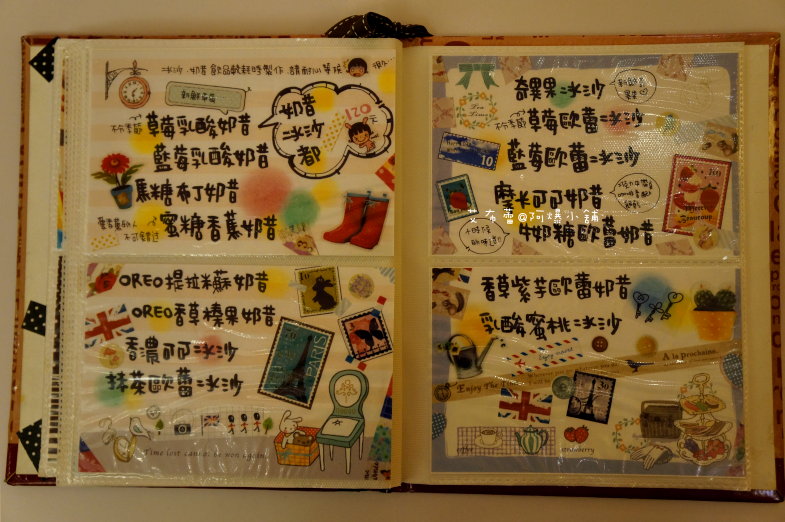 冰沙.奶昔 飲品較耗時製作.請耐心等候
新鮮果品
奶昔
冰沙
都
120
元
季節
草莓乳酸奶昔
藍莓乳酸奶昔
焦糖布丁奶昔
蜜糖香蕉奶昔
OREO提拉米蘇奶昔
OREO香草榛果奶昔
香濃可可冰沙
抹茶歐蕾冰沙
PARIS
Time lost cannot be won again
奇異果冰沙
季節
草莓歐蕾冰沙
藍莓歐蕾冰沙
10
摩卡可可奶昔
牛奶糖歐蕾奶昔
艾布蕾@阿爆小舖
香草紫芋歐蕾奶昔
乳酸蜜桃冰沙
A la prochaine.
Enjoy The
coffee
strawberry